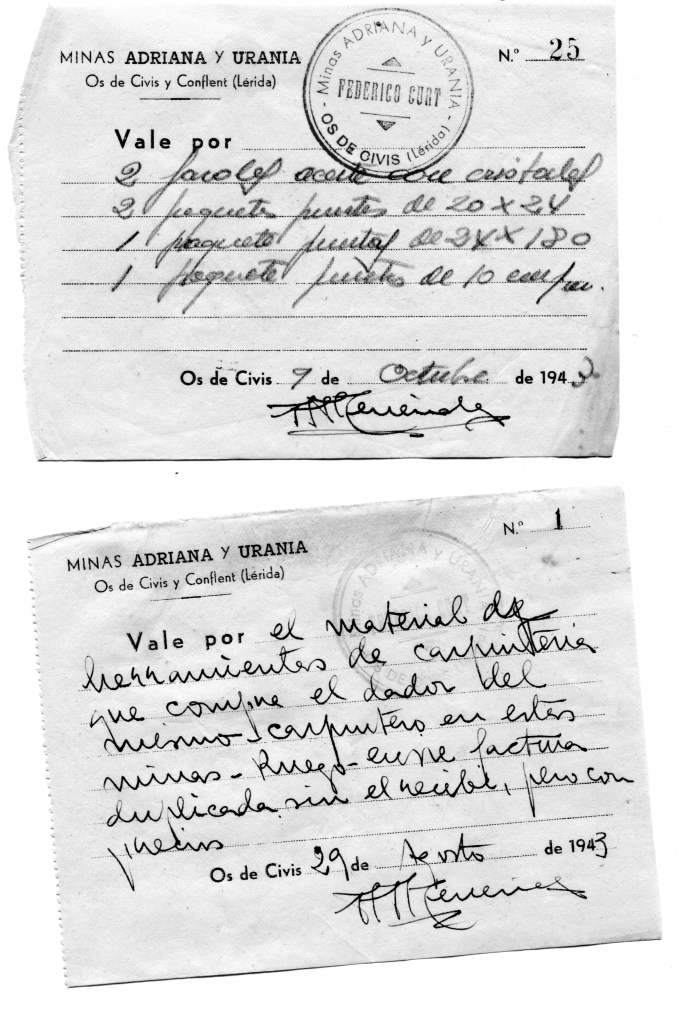 MINAS ADRIANA Y URANIA
Os de Civis y Conflent (Lérida)
N.º 25
Minas ADRIANA Y URANIA
FEDERICO CURT
OS DE CIVIS (Lérida)
Vale por
2 faroles aceite con cristales
2 paquetes puntas de 20 x 24
1 paquete puntas de 24 x 180
1 paquete puntas de 10
Os de Civis 9 de Octubre de 1943
MINAS ADRIANA Y URANIA
Os de Civis y Conflent (Lérida)
N.º 1
Minas ADRIANA Y URANIA
Vale por el material de
herramientas de carpinteria
que compre el dador del
mismo - carpintero en estas
minas - Ruego envie factura
duplicada, sin el recibi, pero con
precios
Os de Civis 29 de Agosto de 1943